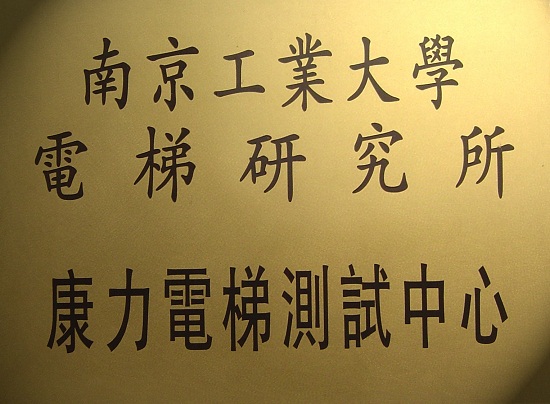 南京工業大學
電梯研究所
康力電梯測試中心